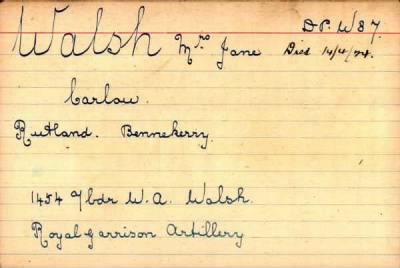 Walsh Mrs Jane D.P. W87.
Died 14/4/24.
Carlow.
Rutland. Bennekerry.
1454 Gbdr W. A. Walsh.
Royal Garrison Artillery